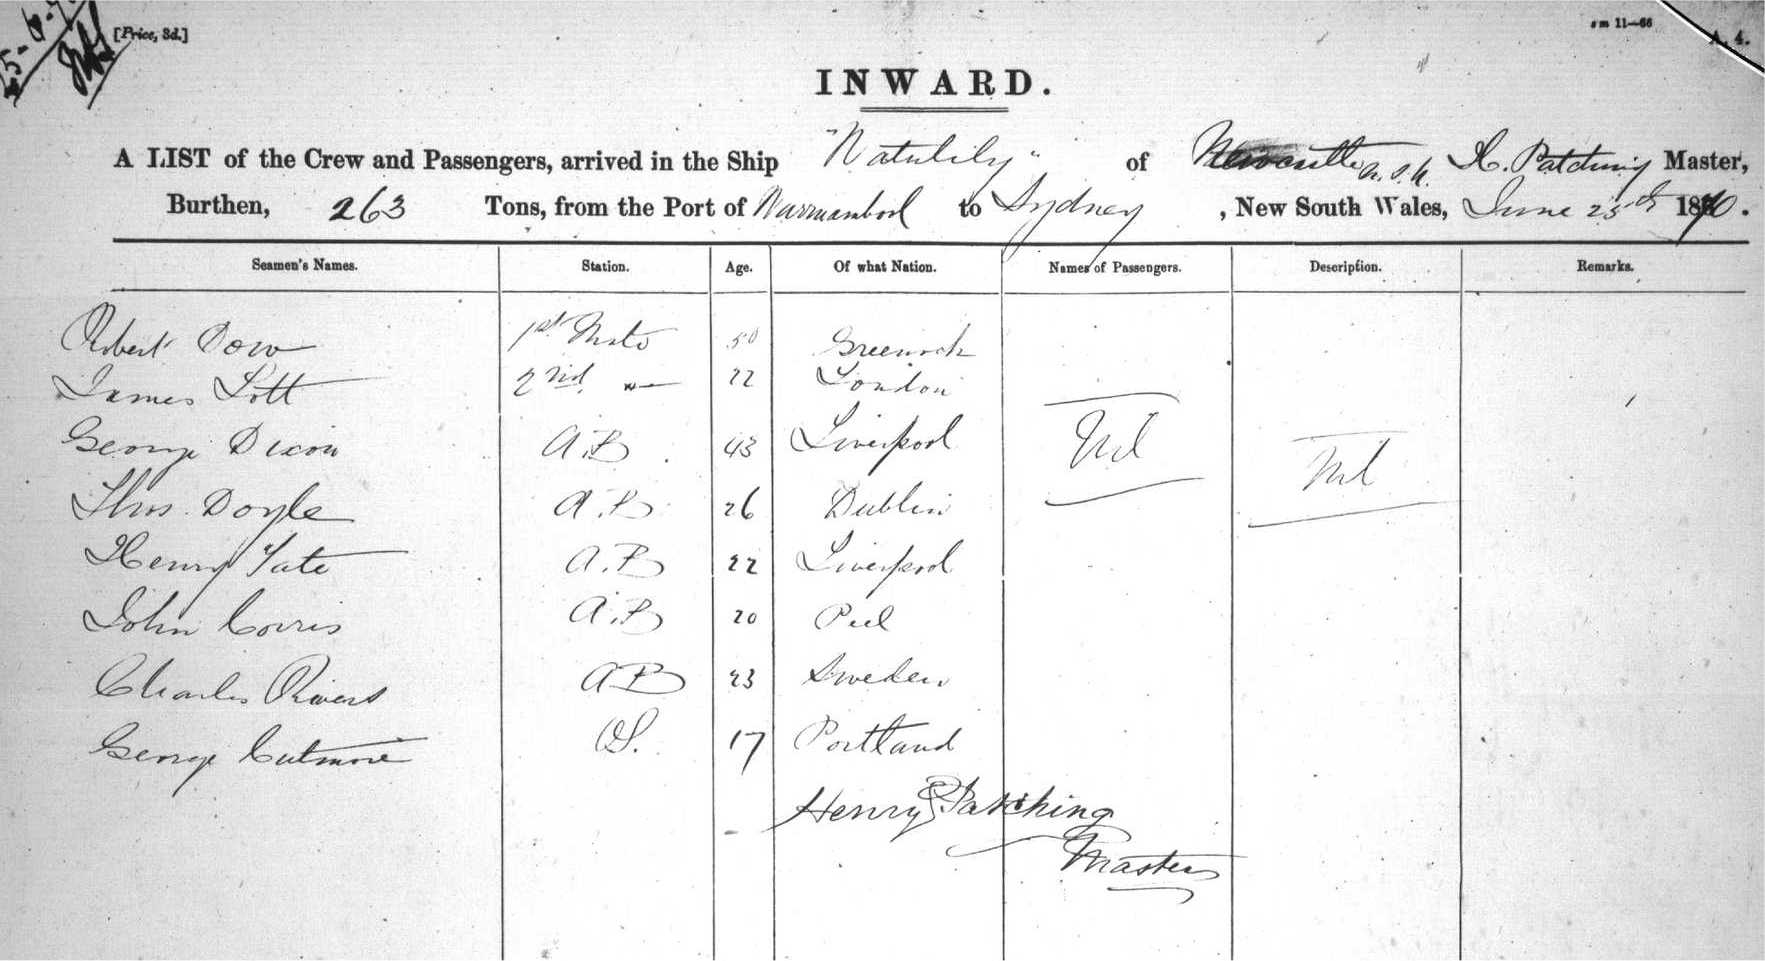 25-6-70
[Price, 3d.]
s m 11—66
A. 4.
INWARD.
A LIST of the Crew and Passengers, arrived in the Ship "Natulily" of Newcastle N.S.W. H. Patching Master,
Burthen, 263 Tons, from the Port of Warrnambool to Sydney, New South Wales, June 25th 1870.
Seamen's Names. Station. Age. Of what Nation. Names of Passengers. Description. Remarks.
Robert Dow 1st Mate 50 Greenock
James Lott 2nd " 22 London
George Dixon A.B 43 Liverpool Nil Nil
Thos. Doyle A.B 26 Dublin
Henry Tate A.B 22 Liverpool
John Corris A.B 20 Peel
Charles Rivers AB 23 Sweden
George Cutmore OS. 17 Portland
Henry Patching
Master